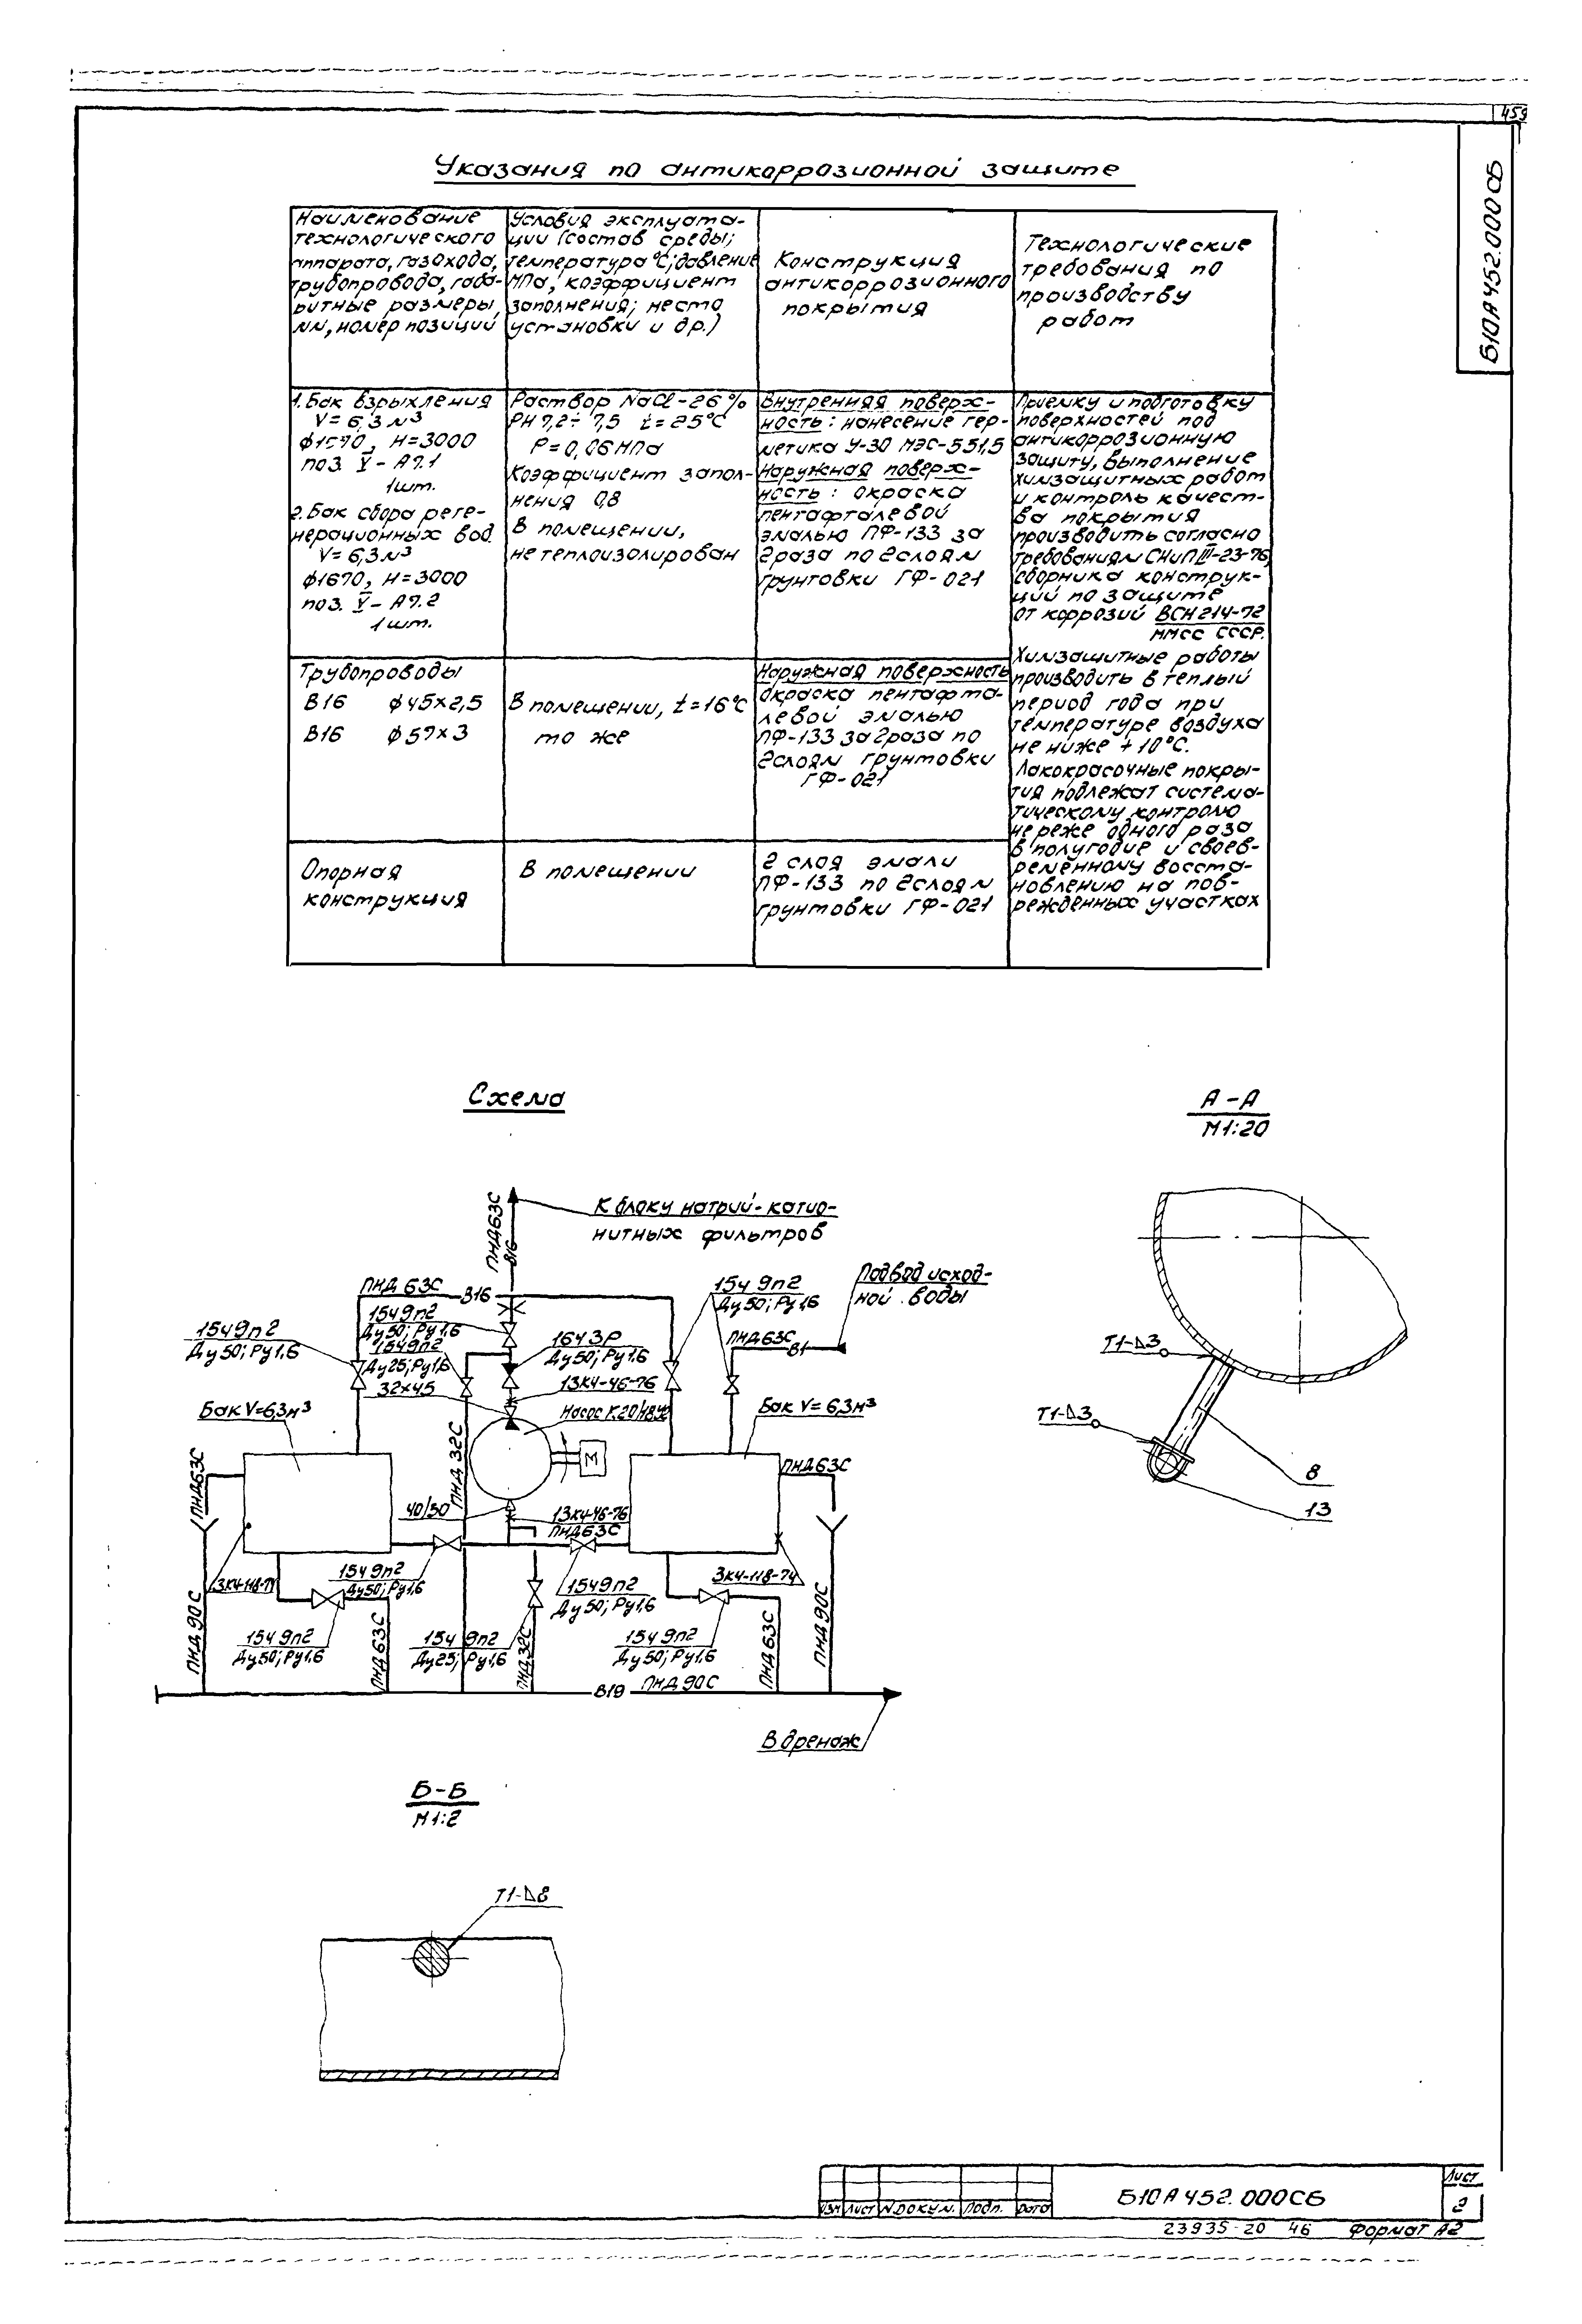 459
Б10А452.000СБ
Указания по антикоррозионной защите
Наименование
технологического
аппарата, газохода,
трубопровода, габа-
ритные размеры,
мм, номер позиций
Условия эксплуата-
ции (состав среды;
температура °С; давление
МПа, коэффициент
заполнения; место
установки и др.)
Конструкция
антикоррозионного
покрытия
Технологические
требования по
производству
работ
1. Бак взрыхления
V = 6,3 м³
ф1670, Н=3000
поз. V - А7.1
1шт.
2. Бак сбора реге-
нерационных вод
V = 6,3м³
ф1670, Н=3000
поз. V - А7.2
1шт.
Раствор NaCl-26%
РН 7,2÷7,5 t=25°С
Р=0,06МПа
Коэффициент запол-
нения 0,8
В помещении,
не теплоизолирован
Внутренняя поверх-
ность: нанесение гер-
метика У-30 МЭС-551,5
Наружная поверх-
ность: окраска
пентафталевой
эмалью ПФ-133 за
2раза по 2слоям
грунтовки ГФ-021
Приемку и подготовку
поверхностей под
антикоррозионную
защиту, выполнение
химзащитных работ
и контроль качест-
ва покрытия
производить согласно
требованиям СНиП III-23-76,
сборника конструк-
ций по защите
от коррозий ВСН 214-72
ММСС СССР.
Химзащитные работы
производить в теплый
период года при
температуре воздуха
не ниже +10°С.
Лакокрасочные покры-
тия подлежат система-
тическому контролю
не реже одного раза
в полугодие и своев-
ременному восста-
новлению на пов-
режденных участках
Трубопроводы
В16 ф45х2,5
В16 ф57х3
В помещении, t=16°С
то же
Наружная поверхность
окраска пентафта-
левой эмалью
ПФ-133 за 2раза по
2слоям грунтовки
ГФ-021
Опорная
конструкция
В помещении
2 слоя эмали
ПФ-133 по 2слоям
грунтовки ГФ-021
Схема
А-А
М1:20
ПНД63С
В16
К блоку натрий-катио-
нитных фильтров
ПНД 63С
В16
15ч 9п2
Ду50; Ру1,6
Подвод исход-
ной воды
15ч9п2
Ду50; Ру1,6
15ч9п2
Ду50; Ру1,6
15ч9п2
Ду25; Ру1,6
32×45
16ч3Р
Ду50; Ру1,6
13К4-46-76
ПНД63С
В1
Насос К20/18У2
Бак V=6,3м³
Бак V= 6,3м³
М
ПНД63С
ПНД 32С
ПНД63С
40/50
13К4-46-76
ПНД63С
3К4-118-74
15ч 9п2
Ду50; Ру1,6
15ч9п2
Ду50; Ру1,6
3К4-118-74
ПНД 90С
15ч 9п2
Ду50; Ру1,6
ПНД63С
15ч 9п2
Ду25; Ру1,6
ПНД32С
15ч 9п2
Ду50; Ру1,6
ПНД63С
ПНД 90С
В19
ПНД 90С
В дренаж
Т1-Δ3
Т1-Δ3
8
13
Б-Б
М1:2
Т1-Δ8
Изм
Лист
N.докум.
Подп.
Дата
Б10А452.000СБ
Лист
2
23935-20 46
Формат А2